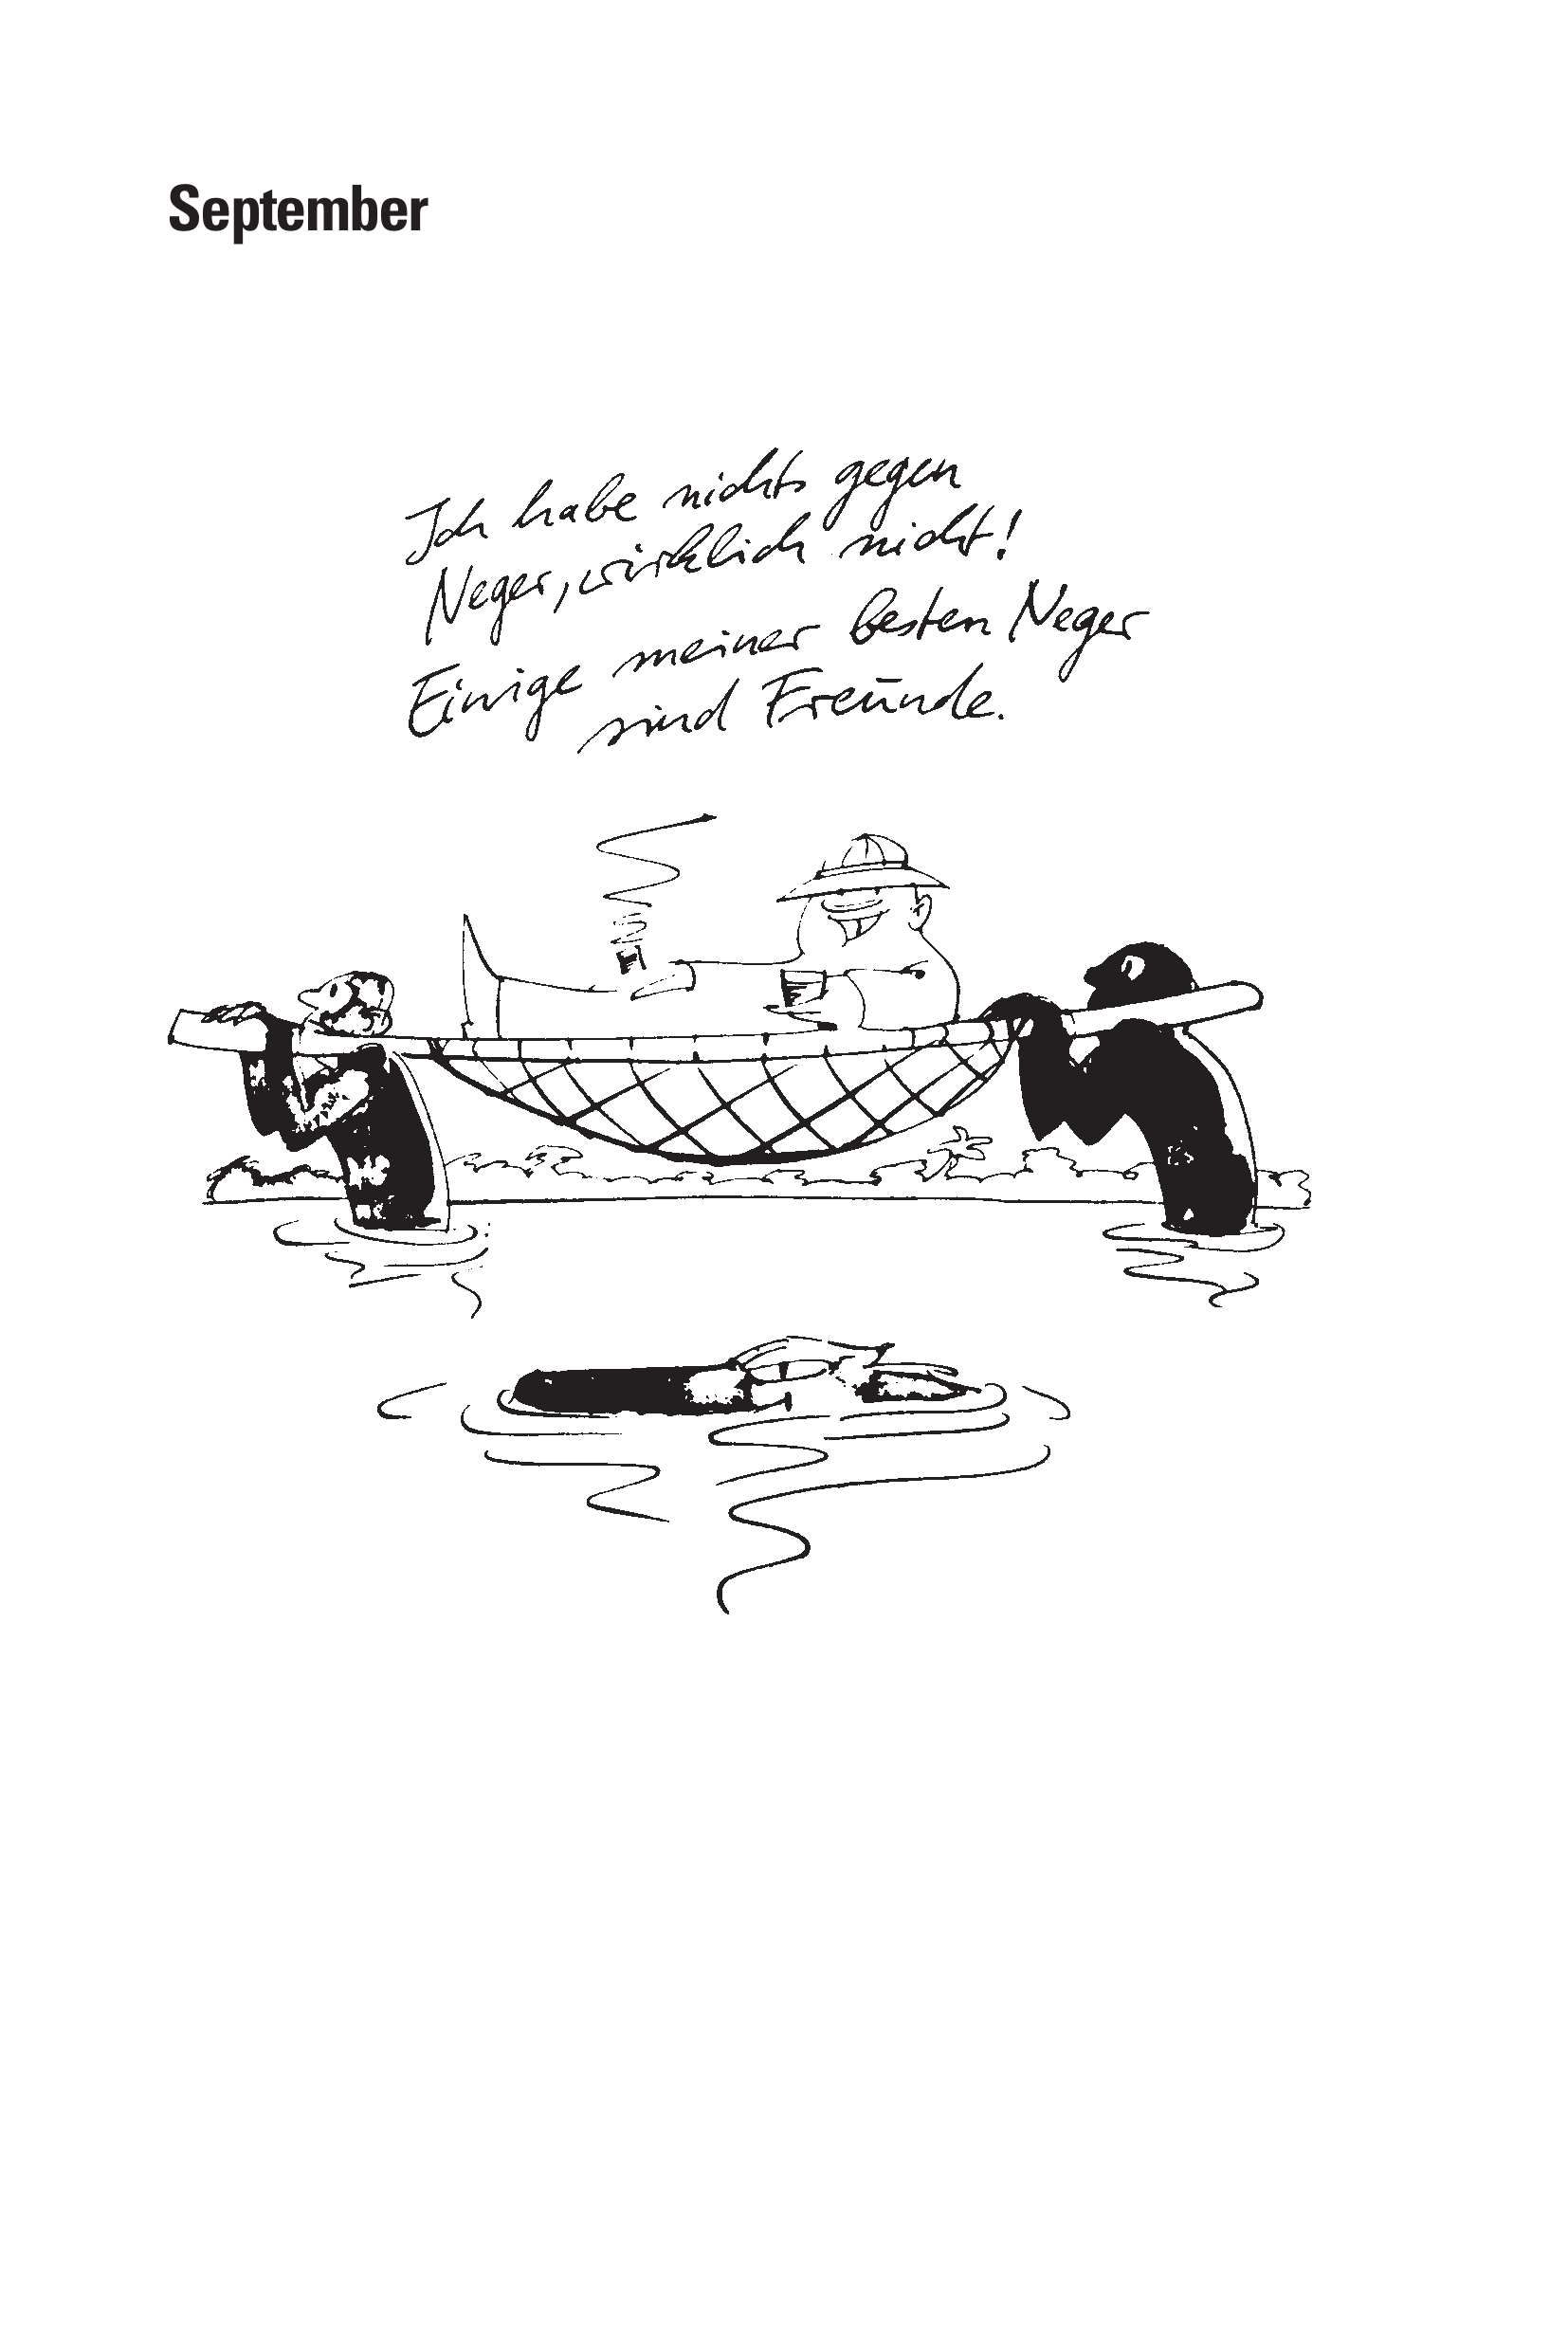 September
Ich habe nichts gegen
Neger, wirklich nicht!
Einige meiner besten Neger
sind Freunde.